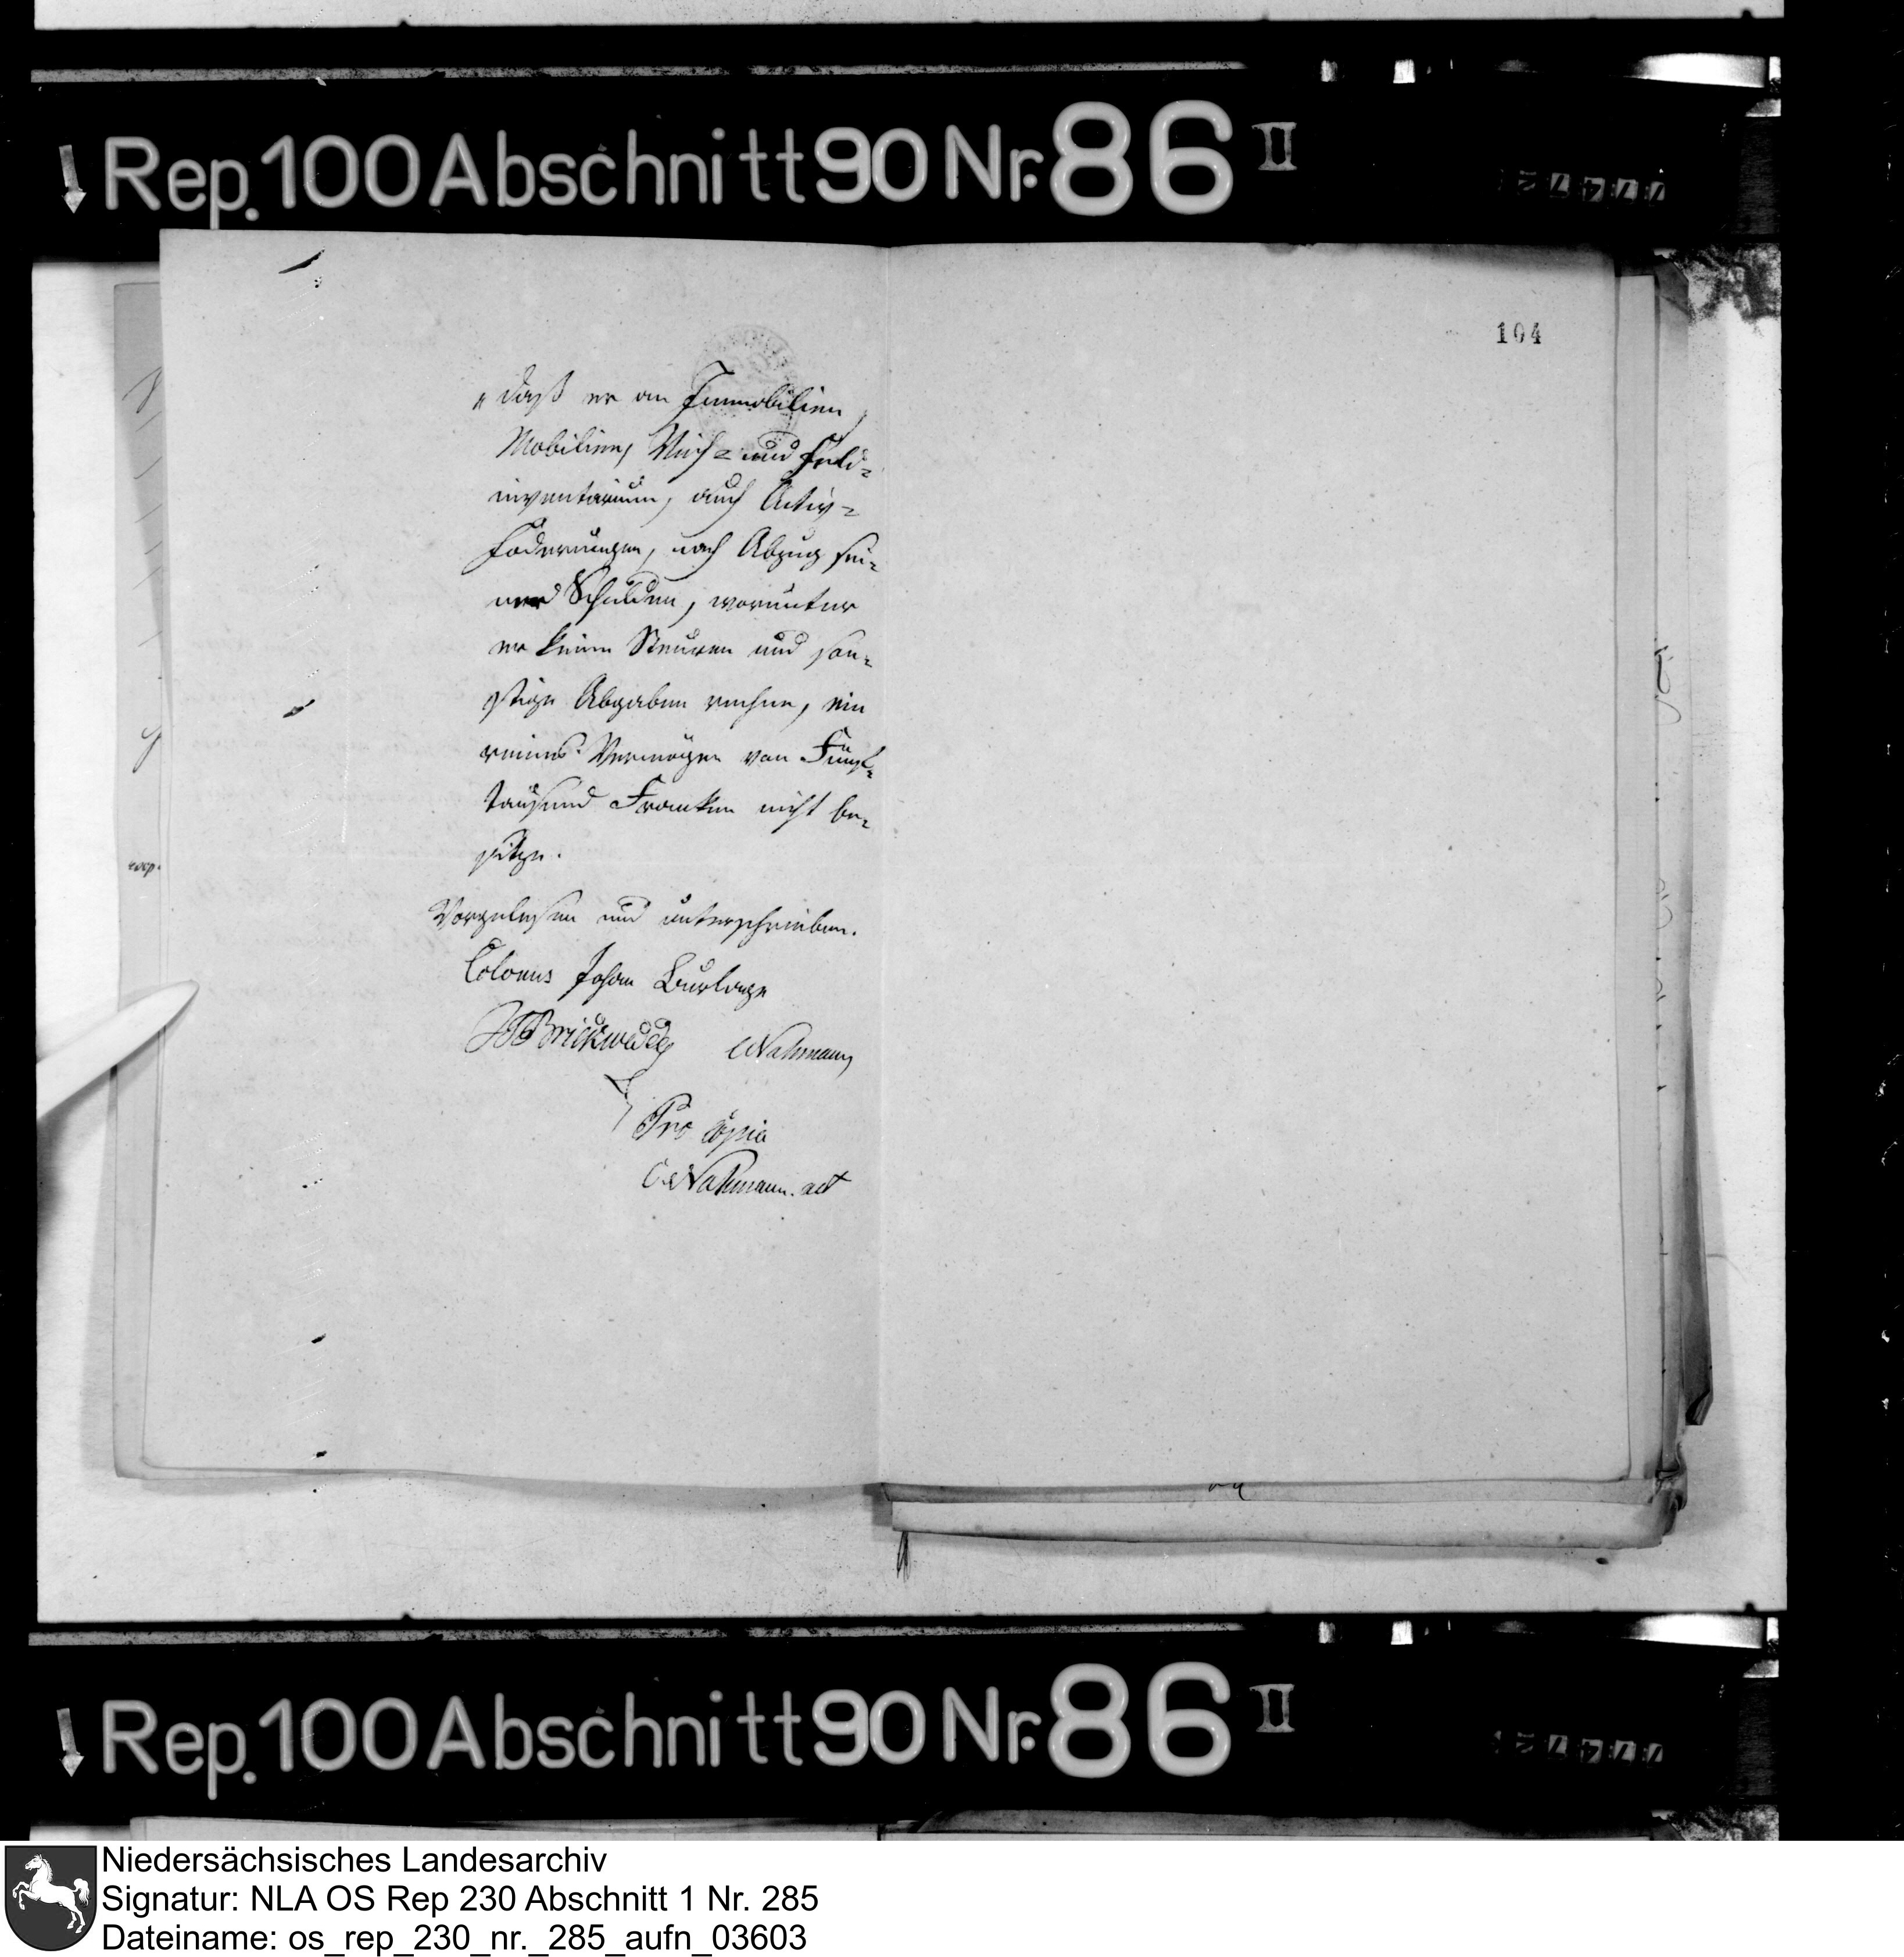 Rep. 100 Abschnitt 90 Nr. 86 II
104
"daß er an Immobilien,
Mobilien, Vieh- und Feld-
inventarium, auch Activ-
Foderungen, nach Abzug sei-
ner Schulden, worunter
er keine Steuren und son-
stige Abgaben rechne, ein
reines Vermögen von Fünf-
tausend Franken nicht be-
sitze.
Vorgelesen und unterschrieben.
Colonus Johan Burlage
Brickwedde CWahmann
Pro copia
CWahmann. act
Rep. 100 Abschnitt 90 Nr. 86 II
Niedersächsisches Landesarchiv
Signatur: NLA OS Rep 230 Abschnitt 1 Nr. 285
Dateiname: os_rep_230_nr._285_aufn_03603